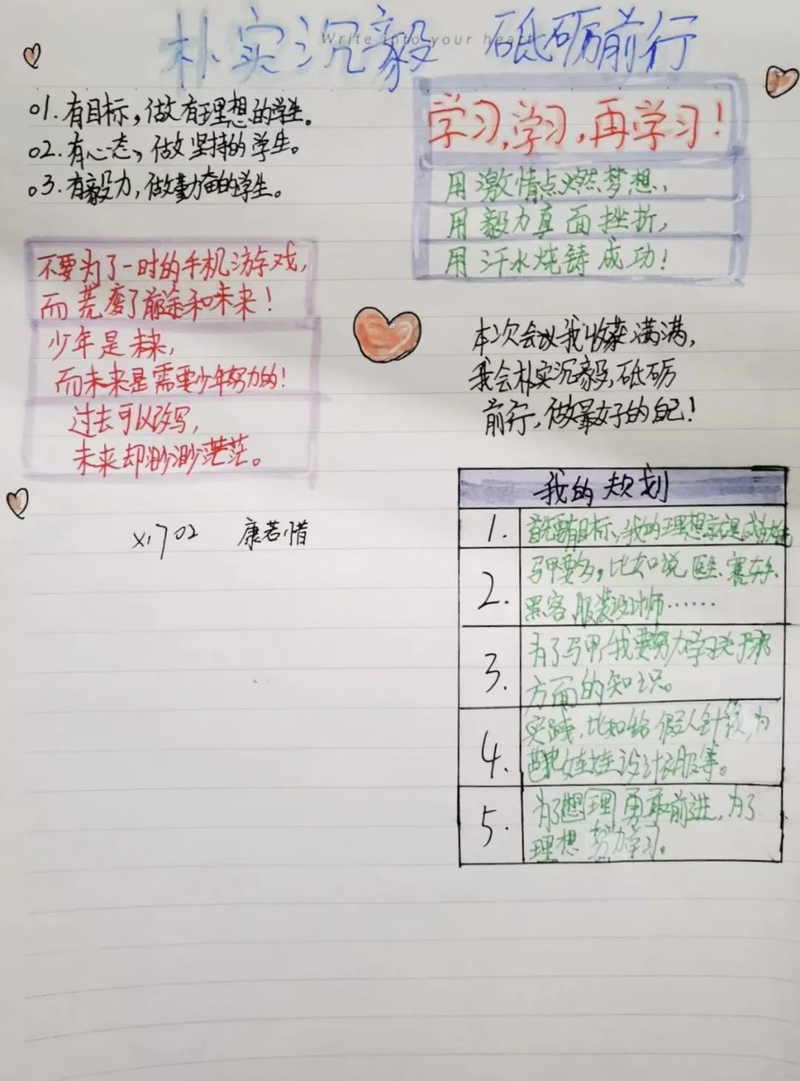 朴实沉毅 砥砺前行
Write into your heart
01.有目标,做有理想的学生。
02.有心态,做坚持的学生。
03.有毅力,做勤奋的学生。
学习,学习,再学习!
用激情点燃梦想,
用毅力直面挫折,
用汗水烧铸成功!
不要为了一时的手机游戏,
而荒废了前途和未来!
少年是未来,
而未来是需要少年努力的!
过去可以改写,
未来却渺渺茫茫。
本次会议我收获满满,
我会朴实沉毅,砥砺
前行,做最好的自己!
x1702 康若惜
我的规划
1. 首先要有目标,我的理想就是成为
2. 马甲要多,比如说医生.赛车手.
黑客.服装设计师……
3. 为了马甲,我要努力学习关于那
方面的知识。
4. 实践.比如给假人针灸,为
娃娃设计衣服等。
5. 为了想理勇敢前进,为了
理想努力学习。